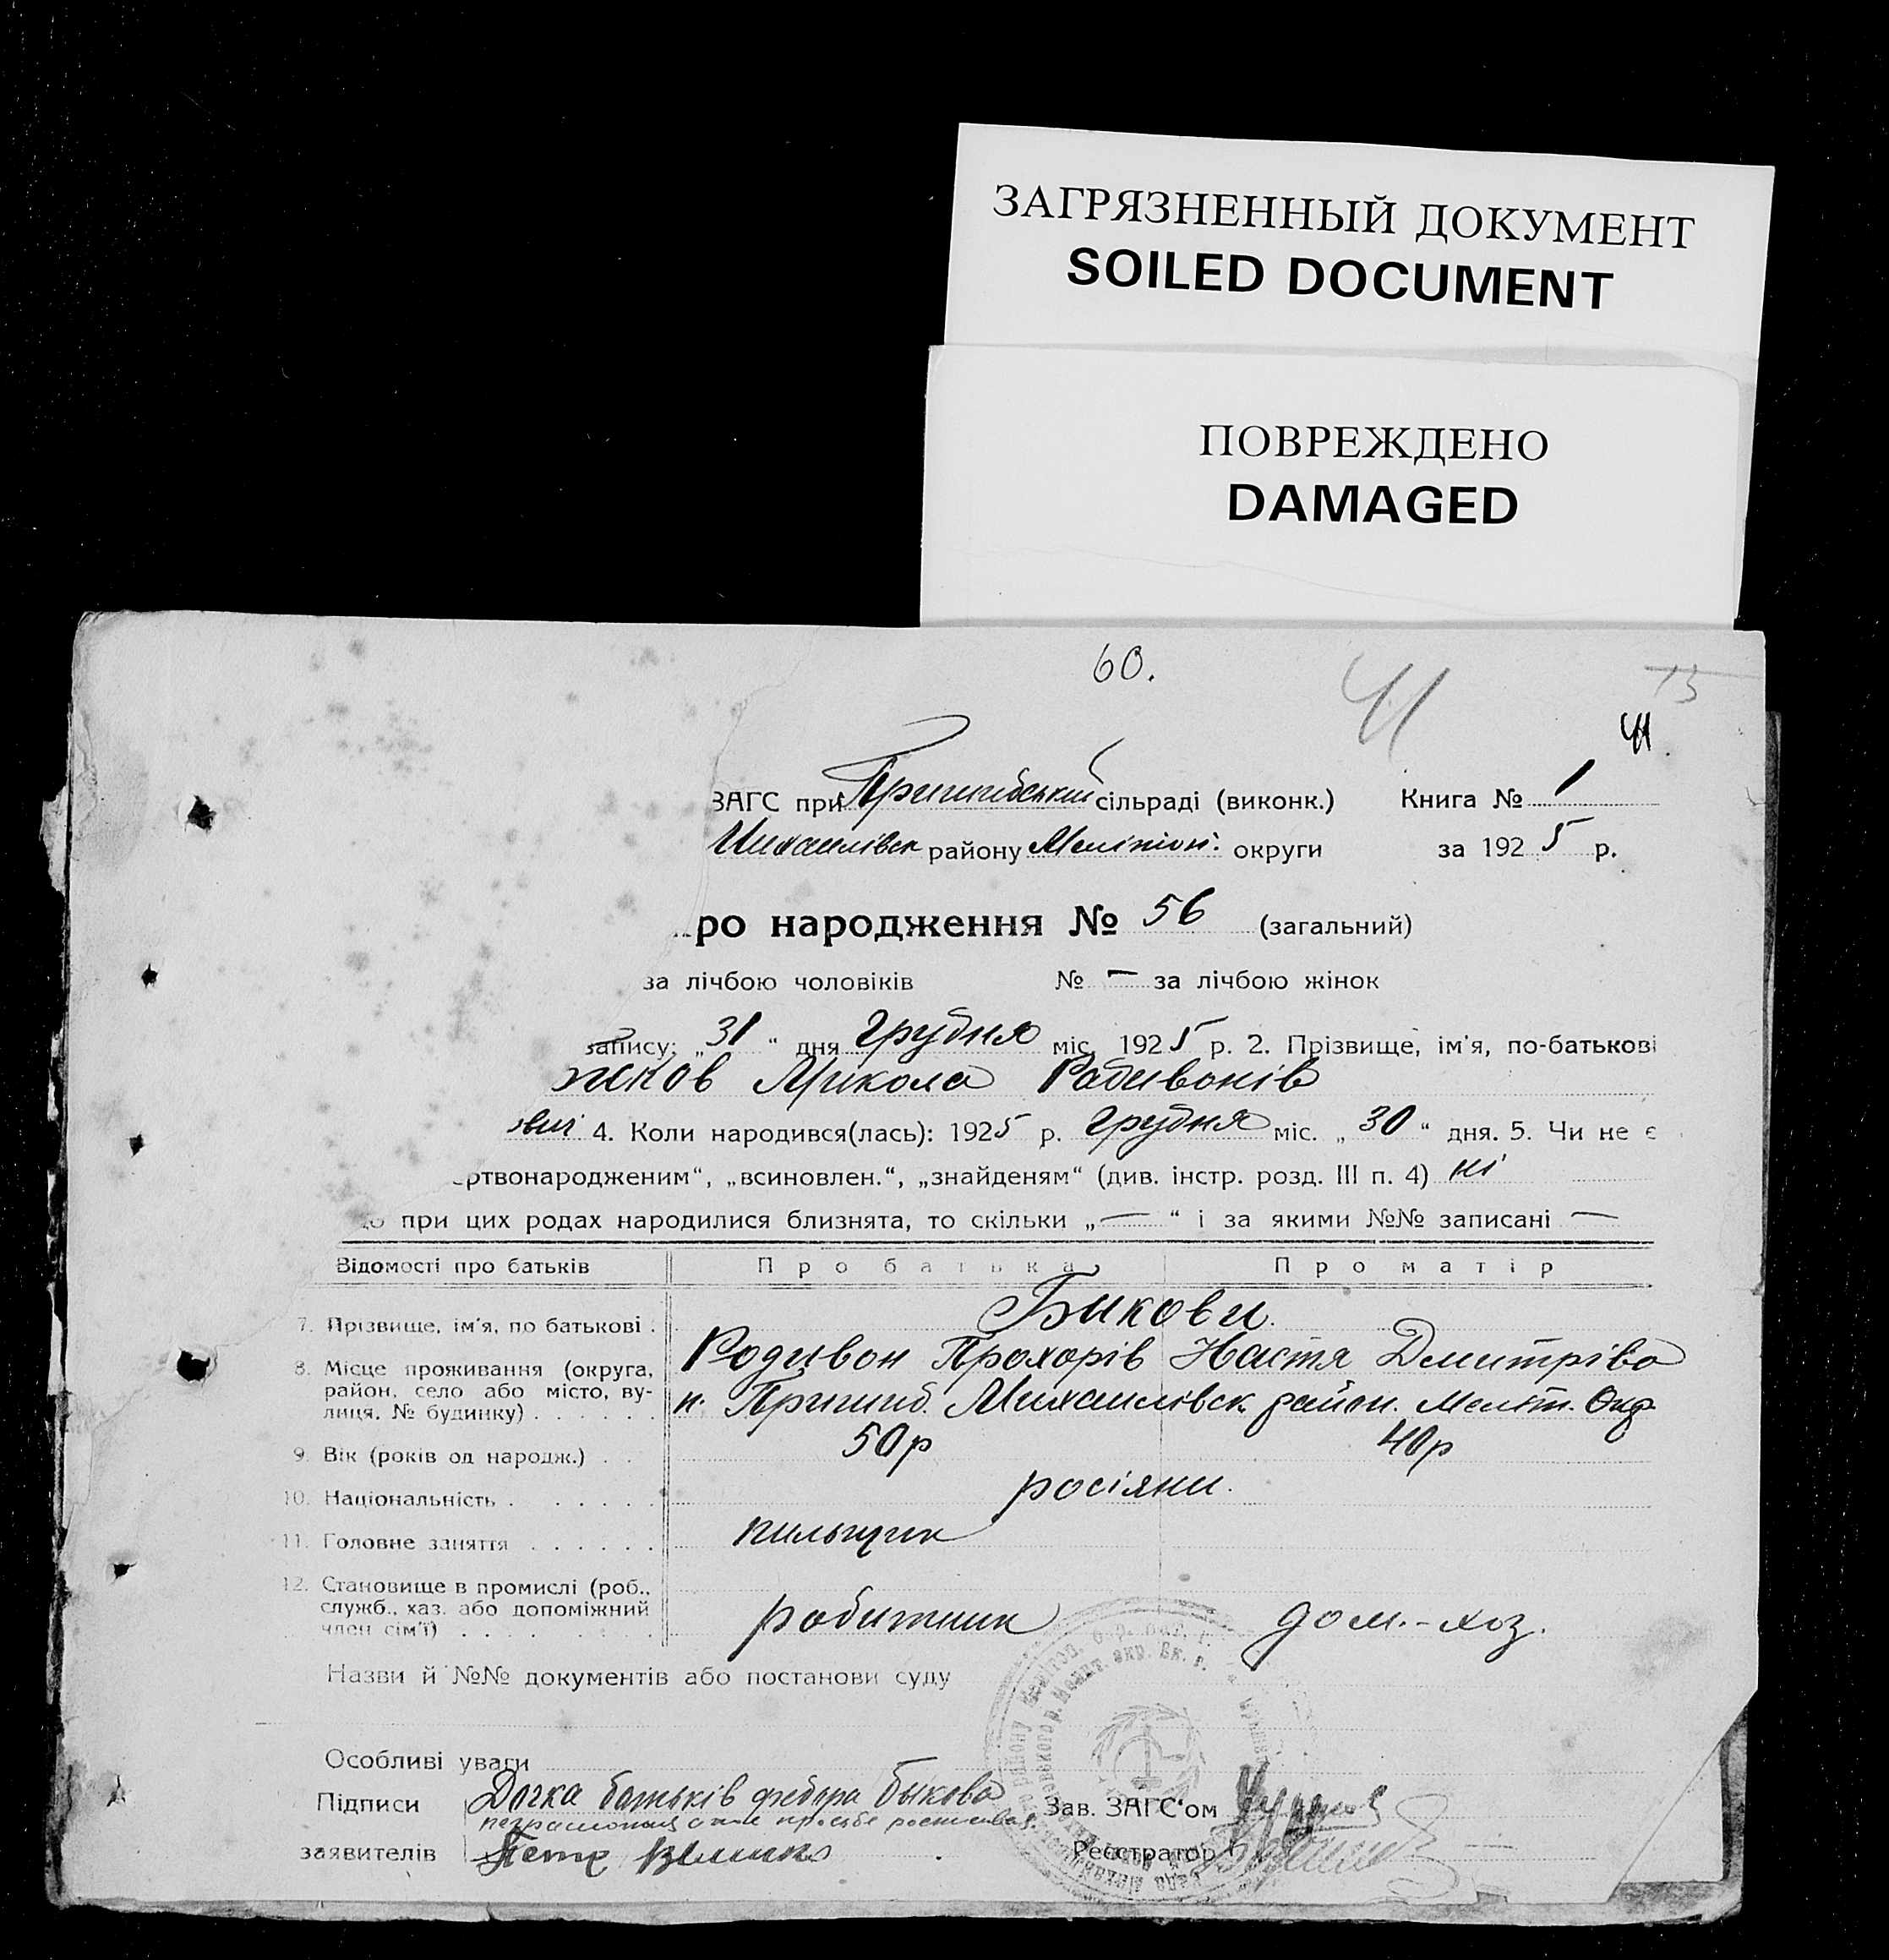 ЗАГРЯЗНЕННЫЙ ДОКУМЕНТ
SOILED DOCUMENT
ПОВРЕЖДЕНО
DAMAGED
60.
41
15
41.
ЗАГС при Пришибський сільраді (виконк.) Книга № 1
Михаилівск району Мелітоп. округи за 1925 р.
ро народження № 56 (загальний)
за лічбою чоловіків № — за лічбою жінок
запису: „31“ дня Грудня міс. 1925 р. 2. Прізвище, ім'я, по-батькові
иков Микола Радивонів
4. Коли народився(лась): 1925 р. Грудня міс. „30“ дня. 5. Чи не є
ртвонародженим“, „всиновлен.“, „знайденям“ (див. інстр. розд. III п. 4) ні
при цих родах народилися близнята, то скільки „—“ і за якими №№ записані —
Відомості про батьків Про батька Про матір
7. Прізвище, ім'я, по батькові . Быкови.
Родивон Прохорів Настя Дмитріва
8. Місце проживання (округа, район, село або місто, вулиця, № будинку) . . . . . . п. Пришиб. Михаилівск. район. Меліт. Окр.
9. Вік (років од народж.) . . 50р 40р
10. Національність . . . . . . росіяни.
11. Головне заняття . . . . . . пильщик
12. Становище в промислі (роб., служб., хаз. або допоміжний член сім'ї) . . . . робитник дом.-хоз.
Назви й №№ документів або постанови суду
Особливі уваги
Підписи Дочка батьків федора быкова Зав. ЗАГС'ом
заявителів Реєстратор